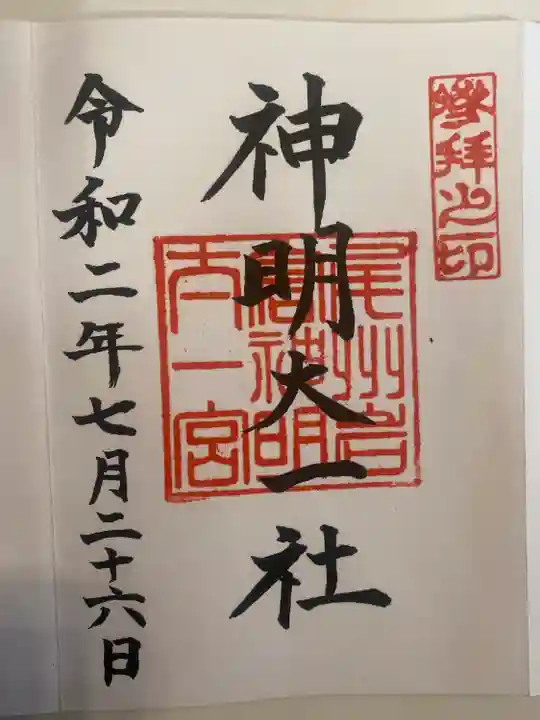 參拜之印
神明大一社
尾州岩
倉神明
大一宮
令和二年七月二十六日